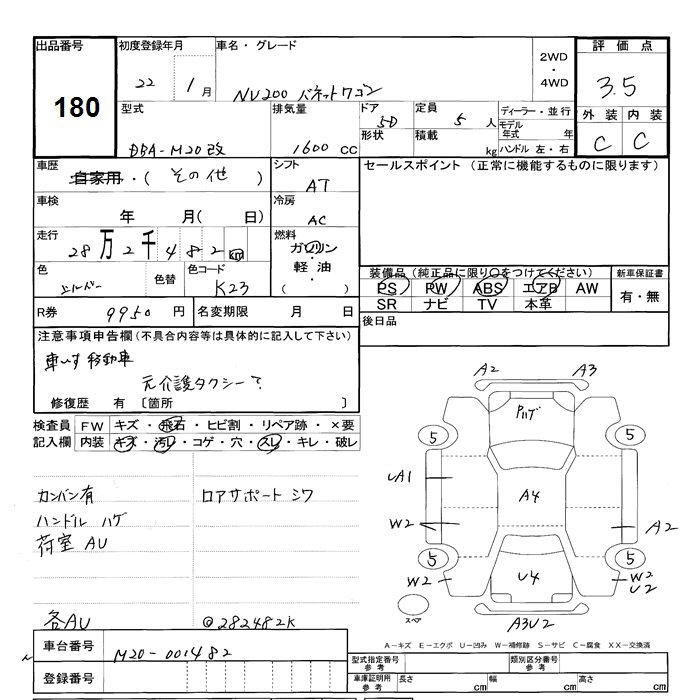 出品番号
180
初度登録年月
22 1月
車名・グレード
NV200 バネットワゴン
2WD
・
4WD
評価点
3.5
型式
DBA-M20改
排気量
1600 CC
ドア
5D
形状
定員
5人
積載
kg
ディーラー・並行
モデル年式 年
ハンドル 左・右
外装 内装
C C
車歴
自家用・( その他 )
シフト
AT
セールスポイント (正常に機能するものに限ります)
車検
年 月( 日)
冷房
AC
走行
28万2千482km
燃料
ガソリン
・
軽油
( )
色
シルバー
色替
色コード
K23
装備品(純正品に限り○をつけてください)
新車保証書
PS PW ABS エアB AW
SR ナビ TV 本革
有・無
R券 9950円
名変期限 月 日
後日品
注意事項申告欄(不具合内容等は具体的に記入して下さい)
車いす移動車
元介護タクシー?
修復歴 有 〔箇所 〕
検査員
記入欄
FW キズ・飛石・ヒビ割・リペア跡・×要
内装 キズ・汚レ・コゲ・穴・スレ・キレ・破レ
カンバン有
ロアサポート シワ
ハンドル ハゲ
荷室 AU
各AU
@282482K
A2 A3
Pハゲ
5 5
UA1
A4
W2
A2
5 5
W2
U4
W2
U2
スペア
A3U2
A-キズ E-エクボ U-凹み W-補修跡 S-サビ C-腐食 XX-交換済
車台番号
M20-001482
登録番号
型式指定番号
参考
類別区分番号
参考
車庫証明用
参考
長さ cm
幅 cm
高さ cm